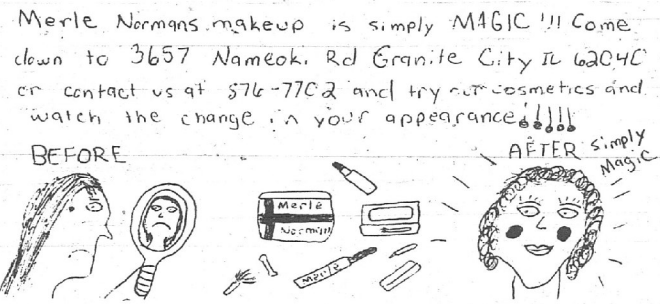 Merle Normans makeup is simply MAGIC !!! Come
down to 3657 Nameoki Rd Granite City IL 62040
or contact us at 876-7702 and try our cosmetics and
watch the change in your appearance!!!!!
BEFORE
AFTER simply
Magic
Merle
Norman
Merle